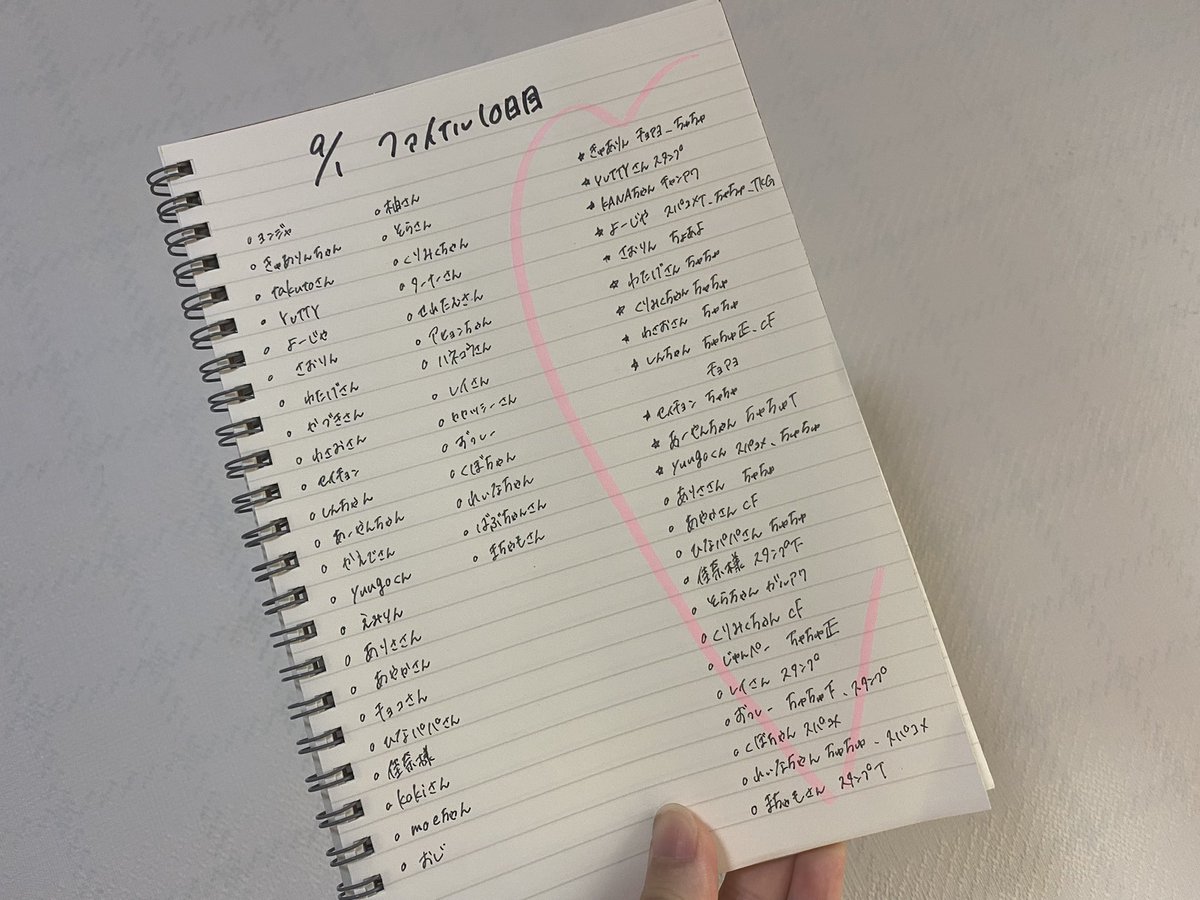 9/1 ファイナル10日目
○ヨンジャ
○きゃありんちゃん
○Takutoさん
○YUTTY
○よーじや
○さおりん
○わたげさん
○かづきさん
○わさおさん
○セイチョン
○しんちゃん
○あーやんちゃん
○かえでさん
○yuugoくん
○えみりん
○ありささん
○あやかさん
○チョコさん
○ひなパパさん
○佳奈様
○kokiさん
○moeちゃん
○おじ
○柚さん
○そらさん
○くりみくちゃん
○ターナーさん
○せれたんさん
○アヒョンちゃん
○ハネコウさん
○レイさん
○ヤヤッシーさん
○おっしー
○くぼちゃん
○れぃなちゃん
○ばぶちゃんさん
○まちゃもさん
★きゃありん チョアヨ、ちゅちゅ
★YUTTYさん スタンプ
★KANAちゃん チャンアク
★よーじや スパコメT、ちゅちゅ、TKG
★さおりん ちょあよ
★わたげさん ちゅちゅ
★くりみくちゃん ちゅちゅ
★わさおさん ちゅちゅ
★しんちゃん ちゅちゅ正、CF
チョアヨ
★セイチョン ちゅちゅ
★あーやんちゃん ちゅちゅT
★yuugoくん スパコメ、ちゅちゅ
○ありささん ちゅちゅ
○あやかさん CF
○ひなパパさん ちゅちゅ
○佳奈様 スタンプT
○そらちゃん ガルアク
○くりみくちゃん CF
○じゃんぺー ちゅちゅ正
○レイさん スタンプ
○おっしー ちゅちゅT、スタンプ
○くぼちゃん スパコメ
○れぃなちゃん ちゅちゅ、スパコメ
○まちゃもさん スタンプT